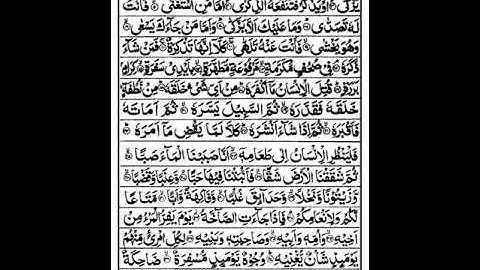 يَزَّكّٰىۙ۝ اَوْ يَذَّكَّرُ فَتَنْفَعَهُ الذِّكْرٰىؕ۝ اَمَّا مَنِ اسْتَغْنٰىۙ۝ فَاَنْتَ
لَهٗ تَصَدّٰىؕ۝ وَمَا عَلَيْكَ اَلَّا يَزَّكّٰىؕ۝ وَاَمَّا مَنْ جَآءَكَ يَسْعٰىۙ۝
وَهُوَ يَخْشٰىۙ۝ فَاَنْتَ عَنْهُ تَلَهّٰىۚ۝ كَلَّاۤ اِنَّهَا تَذْكِرَةٌۚ۝ فَمَنْ شَآءَ
ذَكَرَهٗۘ۝ فِيْ صُحُفٍ مُّكَرَّمَةٍۙ۝ مَّرْفُوْعَةٍ مُّطَهَّرَةٍۙ۝ بِاَيْدِيْ سَفَرَةٍۙ۝ كِرَامٍۭ
بَرَرَةٍؕ۝ قُتِلَ الْاِنْسَانُ مَاۤ اَكْفَرَهٗؕ۝ مِنْ اَيِّ شَيْءٍ خَلَقَهٗؕ۝ مِنْ نُّطْفَةٍؕ
خَلَقَهٗ فَقَدَّرَهٗۙ۝ ثُمَّ السَّبِيْلَ يَسَّرَهٗۙ۝ ثُمَّ اَمَاتَهٗ
فَاَقْبَرَهٗۙ۝ ثُمَّ اِذَا شَآءَ اَنْشَرَهٗؕ۝ كَلَّا لَمَّا يَقْضِ مَاۤ اَمَرَهٗؕ۝
فَلْيَنْظُرِ الْاِنْسَانُ اِلٰى طَعَامِهٖۤۙ۝ اَنَّا صَبَبْنَا الْمَآءَ صَبًّاۙ۝
ثُمَّ شَقَقْنَا الْاَرْضَ شَقًّاۙ۝ فَاَنْۢبَتْنَا فِيْهَا حَبًّاۙ۝ وَّعِنَبًا وَّقَضْبًاۙ۝
وَّزَيْتُوْنًا وَّنَخْلًاۙ۝ وَّحَدَآئِقَ غُلْبًاۙ۝ وَّفَاكِهَةً وَّاَبًّاۙ۝ مَّتَاعًا
لَّكُمْ وَلِاَنْعَامِكُمْؕ۝ فَاِذَا جَآءَتِ الصَّآخَّةُؗ۝ يَوْمَ يَفِرُّ الْمَرْءُ مِنْ
اَخِيْهِۙ۝ وَاُمِّهٖ وَاَبِيْهِۙ۝ وَصَاحِبَتِهٖ وَبَنِيْهِؕ۝ لِكُلِّ امْرِئٍ مِّنْهُمْ
يَوْمَئِذٍ شَاْنٌ يُّغْنِيْهِؕ۝ وُجُوْهٌ يَّوْمَئِذٍ مُّسْفِرَةٌۙ۝ ضَاحِكَةٌ